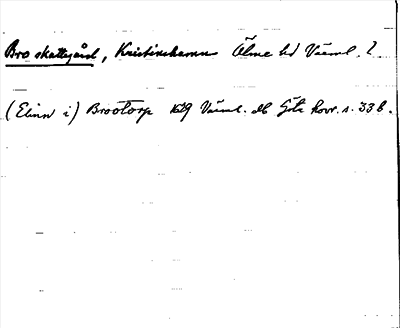 Bro skattegård, Kristinehamn Ölme hd Värml. l.
(Elinn i) Brootorp 1629 Värml. db Göta hovr. s. 338.